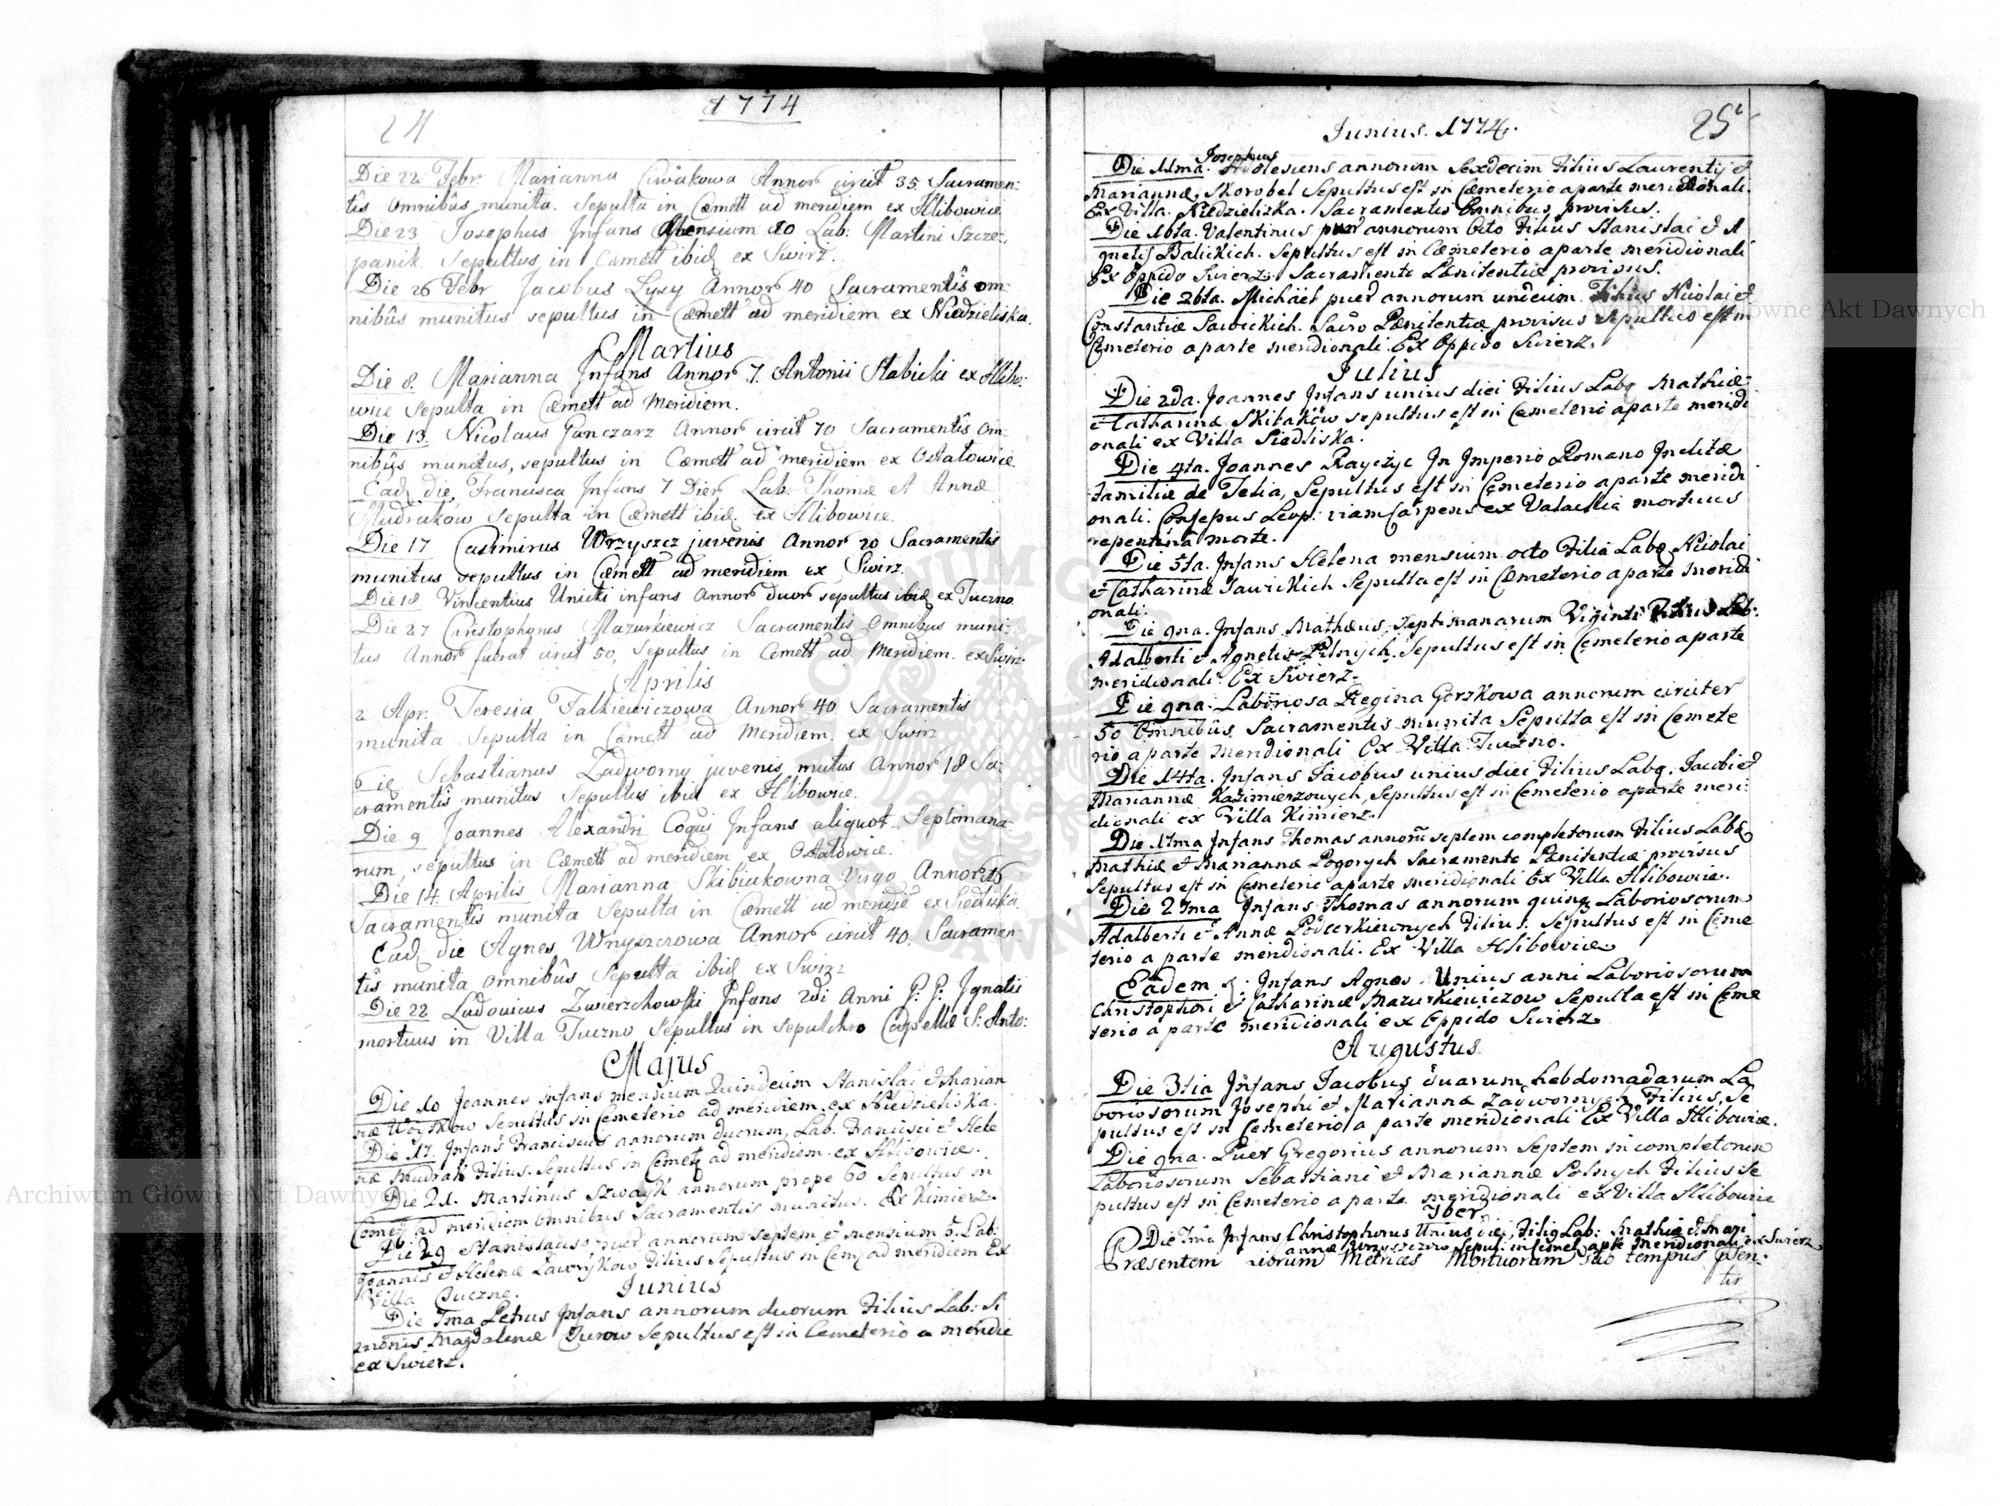 24
1774
Die 22 Febr Marianna Ciwakowa Annor circit 35 Sacramen:
tis omnibus munita. Sepulta in Cæmett ad meridiem ex Hlibowice
Die 23 Josephus Infans Mensium 10 Lab: Martini Szcze:
panik. Sepultus in Cæmett ibid ex Swirz.
Die 26 Febr Jacobus Łysy Annor 40 Sacramentis om:
nibus munitus sepultus in Cæmett ad meridiem ex Niedzieliska.
Martius
Die 8. Marianna Infans Annor 7. Antonii Stabicki ex Hlibo:
wice Sepulta in Cæmett ad Meridiem.
Die 13. Nicolaus Ganczarz Annor circit 70 Sacramentis om:
nibus munitus, sepultus in Cæmett ad meridiem ex Ostalowice
Ead die Francisca Infans 7 Dier Lab: Thomæ et Annæ
Mudraków Sepulta in Cæmett ibid. ex Hlibowice.
Die 17 Casimirus Wrzyszcz juvenis Annor 20 Sacramentis
munitus sepultus in Cæmett ad meridiem ex Swirz.
Die 18 Vincentius Unicki infans Annor duor sepultus ibid ex Tuczno
Die 27 Christophorus Mazurkiewicz Sacramentis omnibus muni:
tus Annor fuerat circit 50, Sepultus in Cemett ad Meridiem. ex Swirz
Aprilis
2 Apr. Teresia Falkiewiczowa Annor 40 Sacramentis
munita Sepulta in Cæmett ad Meridiem. ex Swirz
6 ie Sebastianus Zadworny juvenis mutus Annor 18 Sa:
cramentis munitus Sepultus ibid ex Hlibowice.
Die 9 Joannes Alexandri Coqui Infans aliquot Septimana
rum, sepultus in Cæmett ad meridiem ex Ostalowice.
Die 14 Aprilis Marianna Skibiukowna Virgo Annor 16
Sacramentis munita Sepulta in Cæmett ad meridie ex Siedliska
Ead die Agnes Wryszczowa Annor circit 40. Sacramen
tis munita omnibus Sepulta ibid ex Swirz
Die 22 Ludovicus Zwierzchowski Infans 2di Anni G: G: Ignatii
mortuus in Villa Tuczno Sepultus in sepulchro Capellæ S: Anto:
Majus
Die 10 Joannes infans mensium Quindecim Stanislai et Marian
næ Woytkow Sepultus in Cemeterio ad meridiem. ex Niedzieliska.
Die 17. Infans Franciscus annorum duorum, Lab. Francisci et Hele
næ Mudrak Filius. Sepultus in Cemet ad meridiem. ex Hlibowice.
Die 21. Martinus Szwayk annorum prope 60 Sepultus in
Cemet ad meridiem omnibus Sacramentis munitus. Ex Kimierz.
Die 29 Stanislaus puer annorum septem et mensium 5. Lab:
Joannis et Helenæ Lawrykow Filius Sepultus in Cemet ad meridiem Ex
Villa Tuczne.
Junius
Die 7ma Petrus Infans annorum duorum Filius Lab: Si
monis Magdalenæ Turow Sepultus est in Cemeterio a meridie
ex Swierz.
Junius. 1774.
25
Josephus
Die 11ma. Adolesens annorum Sexdecim Filius Laurentij et
Mariannæ, Skorobel Sepultus est in Cæmeterio a parte meridionali.
Ex Villa. Niedzieliska. Sacramentis Omnibus provisus.
Die 16ta. Valentinus puer annorum Octo Filius Stanislai et A
gnetis Balickich. Sepultus est in Cæmeterio a parte meridionali
Ex Oppido Swierz. Sacramento Pænitentiæ provisus.
Die 26ta. Michael puer annorum undecim. Filius Nicolai et
Constantiæ Sawickich. Sacro Pænitentiæ provisus Sepultus est in
Cemeterio a parte meridionali. Ex Oppido Swierz.
Julius
Die 2da. Joannes Infans unius diei Filius Labo Mathiæ
et Catharinæ Skibaków sepultus est in Cemeterio a parte meridi
onali ex Villa Siedliska.
Die 4ta. Joannes Rayczyc In Imperio Romano Inclitæ
Familiæ de Telia, Sepultus est in Cemeterio a parte meridi
onali. Consepus Leop: viam Carpens ex Valachia mortuus
repentina morte.
Die 5ta. Infans Helena mensium octo Filia Labo Nicolai
et Catharinæ Jawickich Sepulta est in Cæmeterio a parte meridi
onali.
Die 9na. Infans Mathæus Septimanarum Viginti Filius Lab:
Adalberti et Agnetis Pilnych. Sepultus est in Cemeterio a parte
meridionali. Ex Swierz.
Die 9na. Laboriosa Regina Gorzkowa annorum circiter
50 Omnibus Sacramentis munita Sepulta est in Cemete
rio a parte meridionali Ex Villa Tuczno.
Die 14ta. Infans Jacobus unius diei Filius Labo. Jacobi et
Mariannæ Kazimierzowych, Sepultus est in Cemeterio a parte meri:
dionali ex Villa Kimierz.
Die 17ma Infans Thomas annorum septem completorum Filius Labo
Mathiæ et Mariannæ Pogorych Sacramento Pænitentiæ provisus
Sepultus est in Cemeterio a parte meridionali Ex Villa Hlibowice.
Die 27ma Infans Thomas annorum quinq Laboriosorum
Adalberti et Annæ Podcerkiewnych Filius. Sepultus est in Ceme
terio a parte meridionali. Ex Villa Hlibowice
Eadem d. Infans Agnes Unius anni Laboriosorum
Christophori et Catharinæ Mazurkiewiczow Sepulta est in Ceme
terio a parte meridionali ex Oppido Swierz
Augustus
Die 3tia Infans Jacobus duarum hebdomadarum La
boriosorum Josephi et Mariannæ Zadwornych Filius, Se
pultus est in Cemeterio a parte meridionali Ex Villa Hlibowice.
Die 9na. Puer Gregorius annorum Septem in completorum
Laboriosorum Sebastiani et Mariannæ Polnych Filius Se
pultus est in Cemeterio a parte meridionali ex Villa Hlibowice
7ber
Die 7ma Infans Christophorus Unius diei Filig Lab: Mathiæ et Mari
annæ Sepul. in Cemet a pte Meridionali ex Swierz
Præsentem Librum Metrices Mortuorum sub tempus